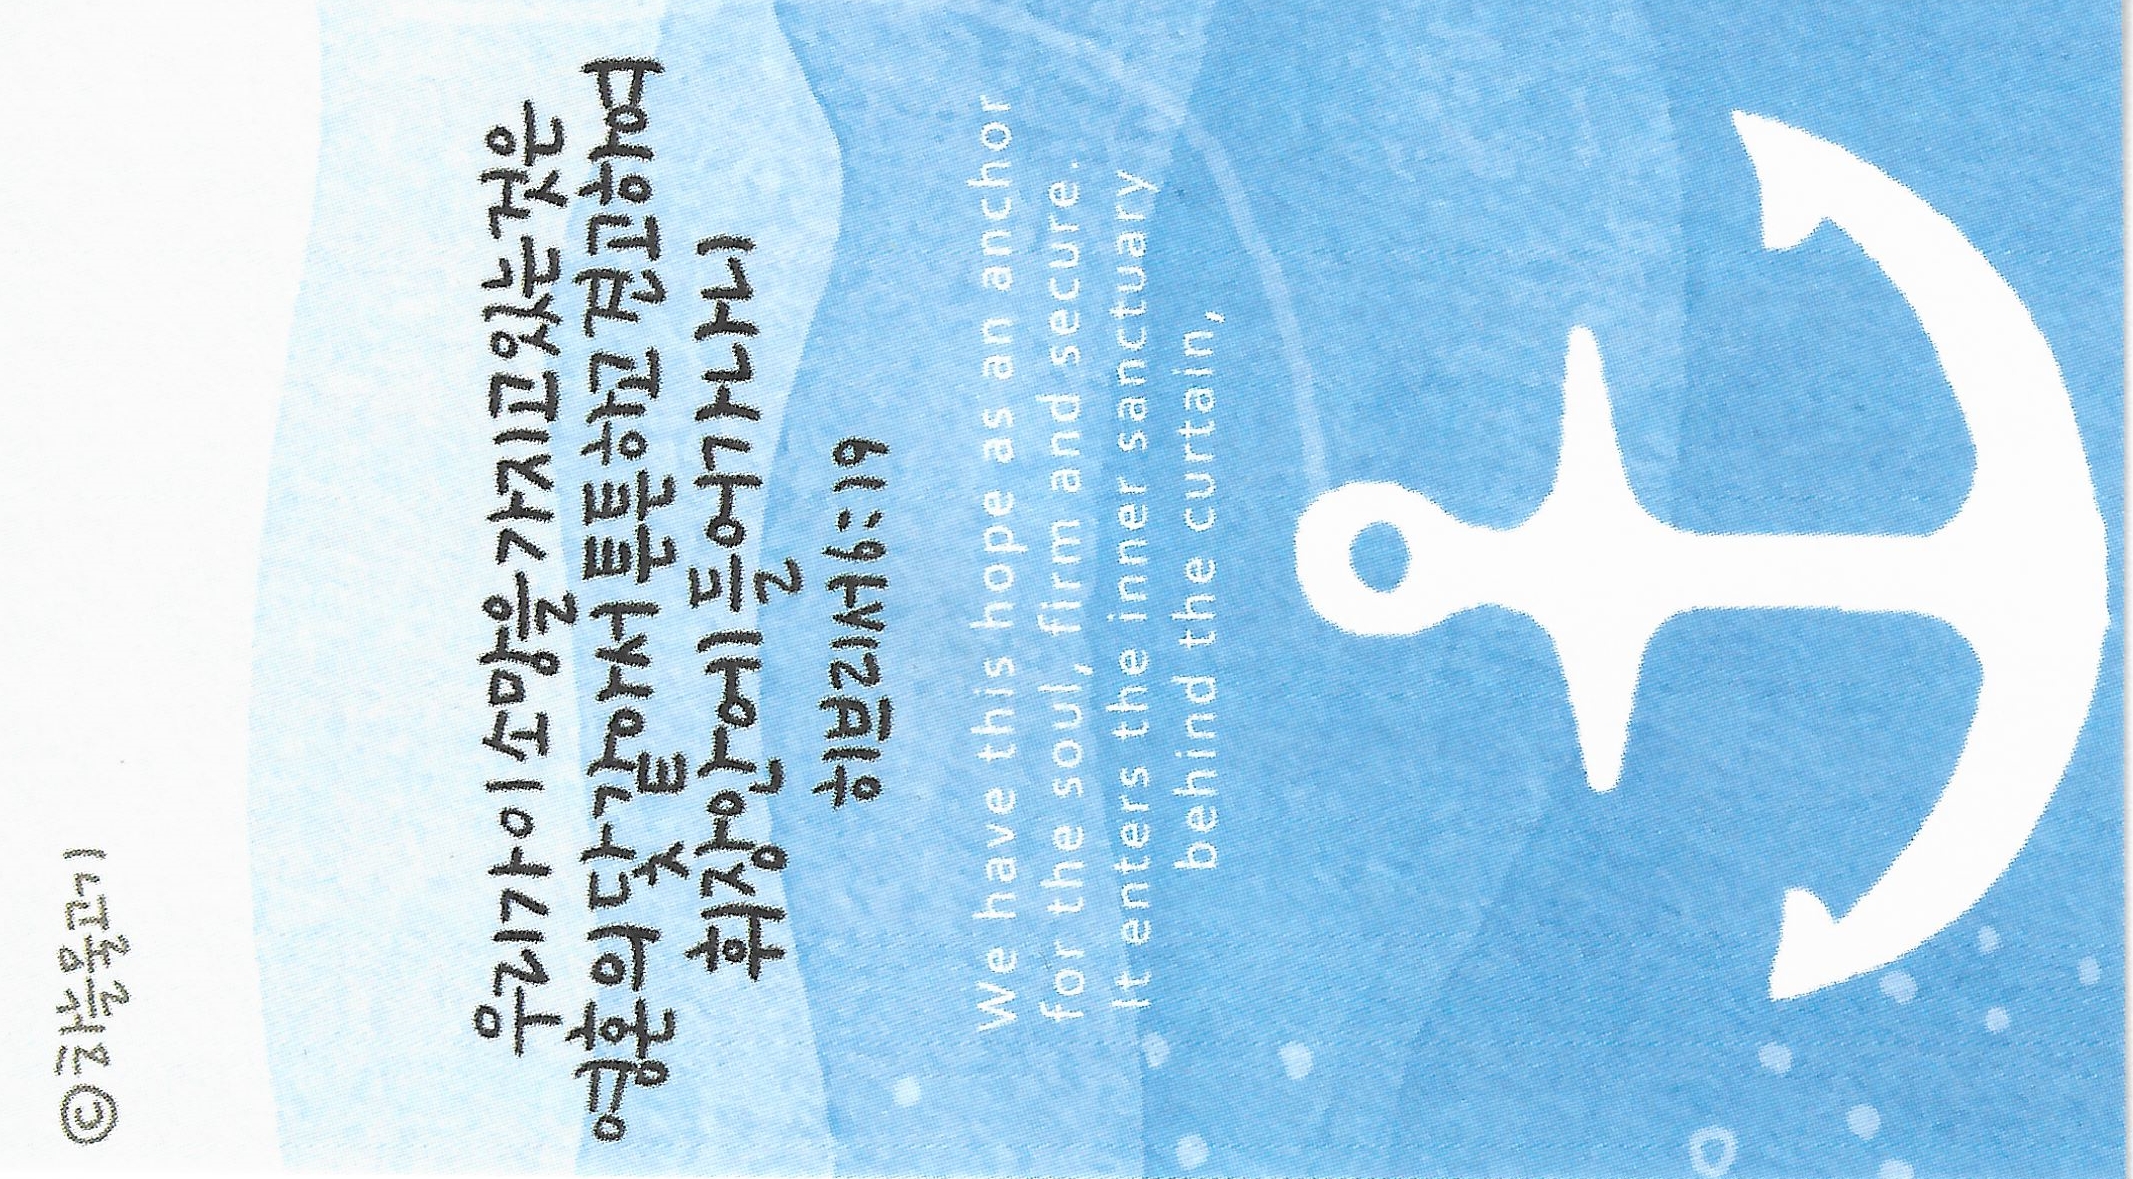 ©하늘물고기
우리가 이 소망을 가지고 있는 것은
영혼의 닻 같아서 튼튼하고 견고하여
휘장 안에 들어가나니
히브리서 6:19
We have this hope as an anchor
for the soul, firm and secure.
It enters the inner sanctuary
behind the curtain,